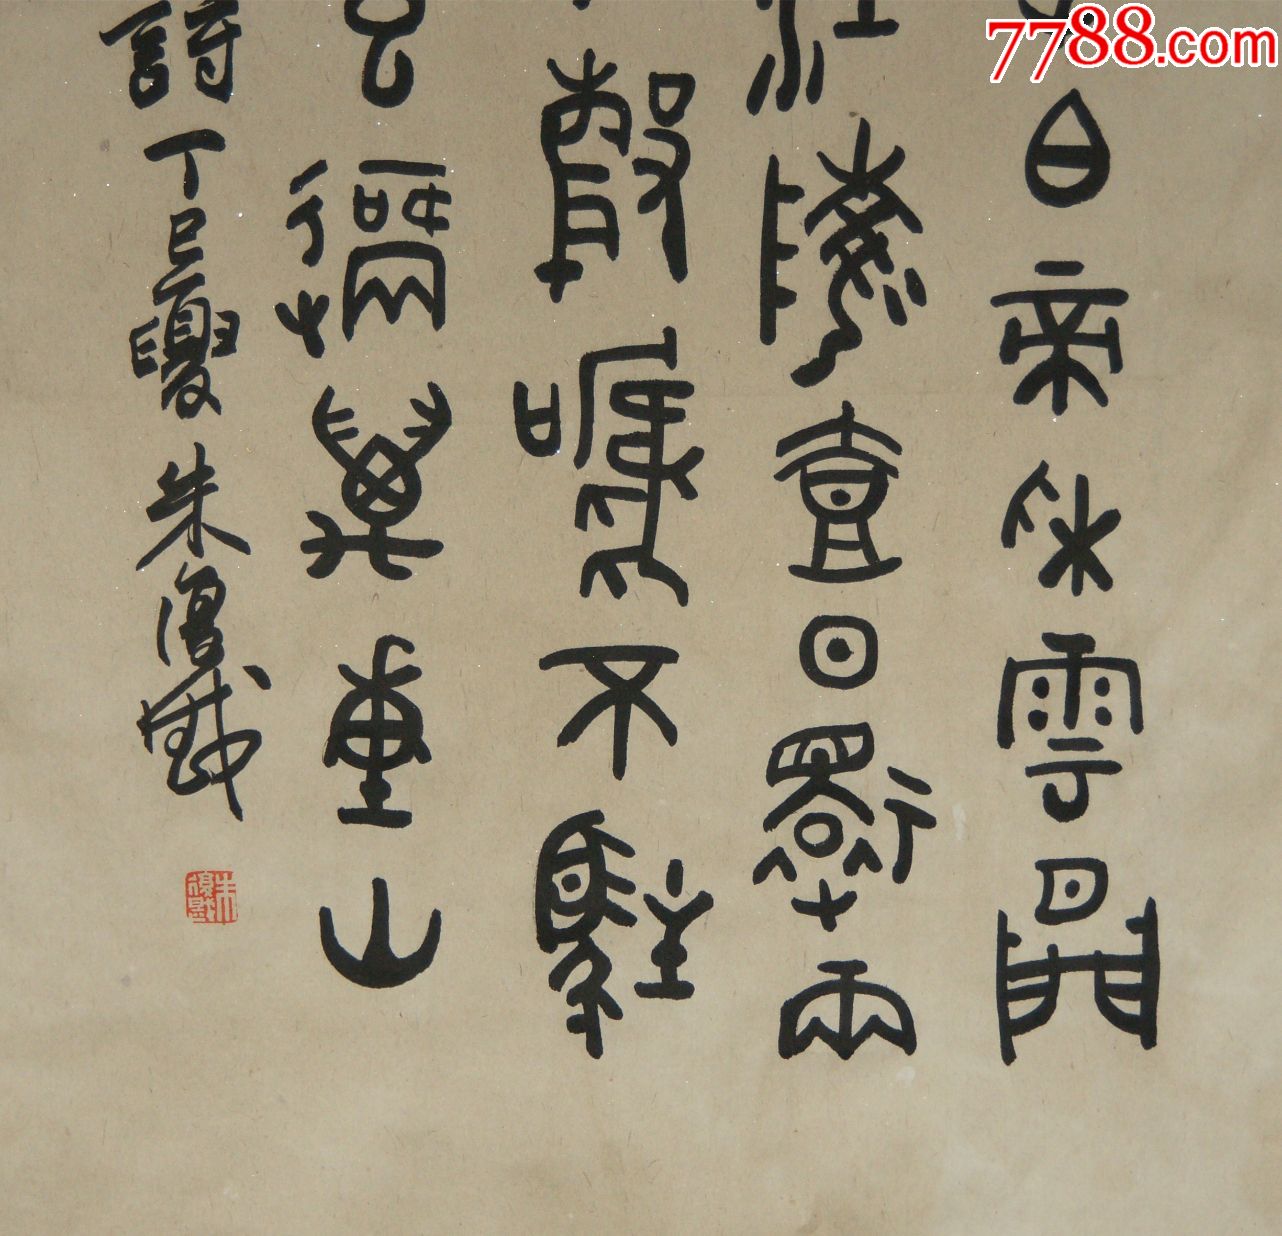 白帝彩雲間
江陵壹日還兩
聲啼不駐
已過萬重山
詩丁巳夏朱復戡
朱復戡
7788.com